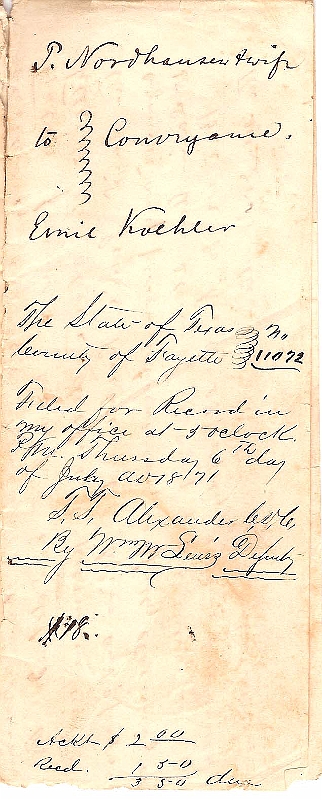 P. Nordhausen & wife
to Conveyance.
Emil Koehler
The State of Texas No
County of Fayette 11072
Filed for Record in
my office at 5 oclock
P.M. Thursday 6th day
of July AD 1871
T. T. Alexander
By Wm Deputy
Ackt $ 2 00
Recd. 1 50
3 50 due